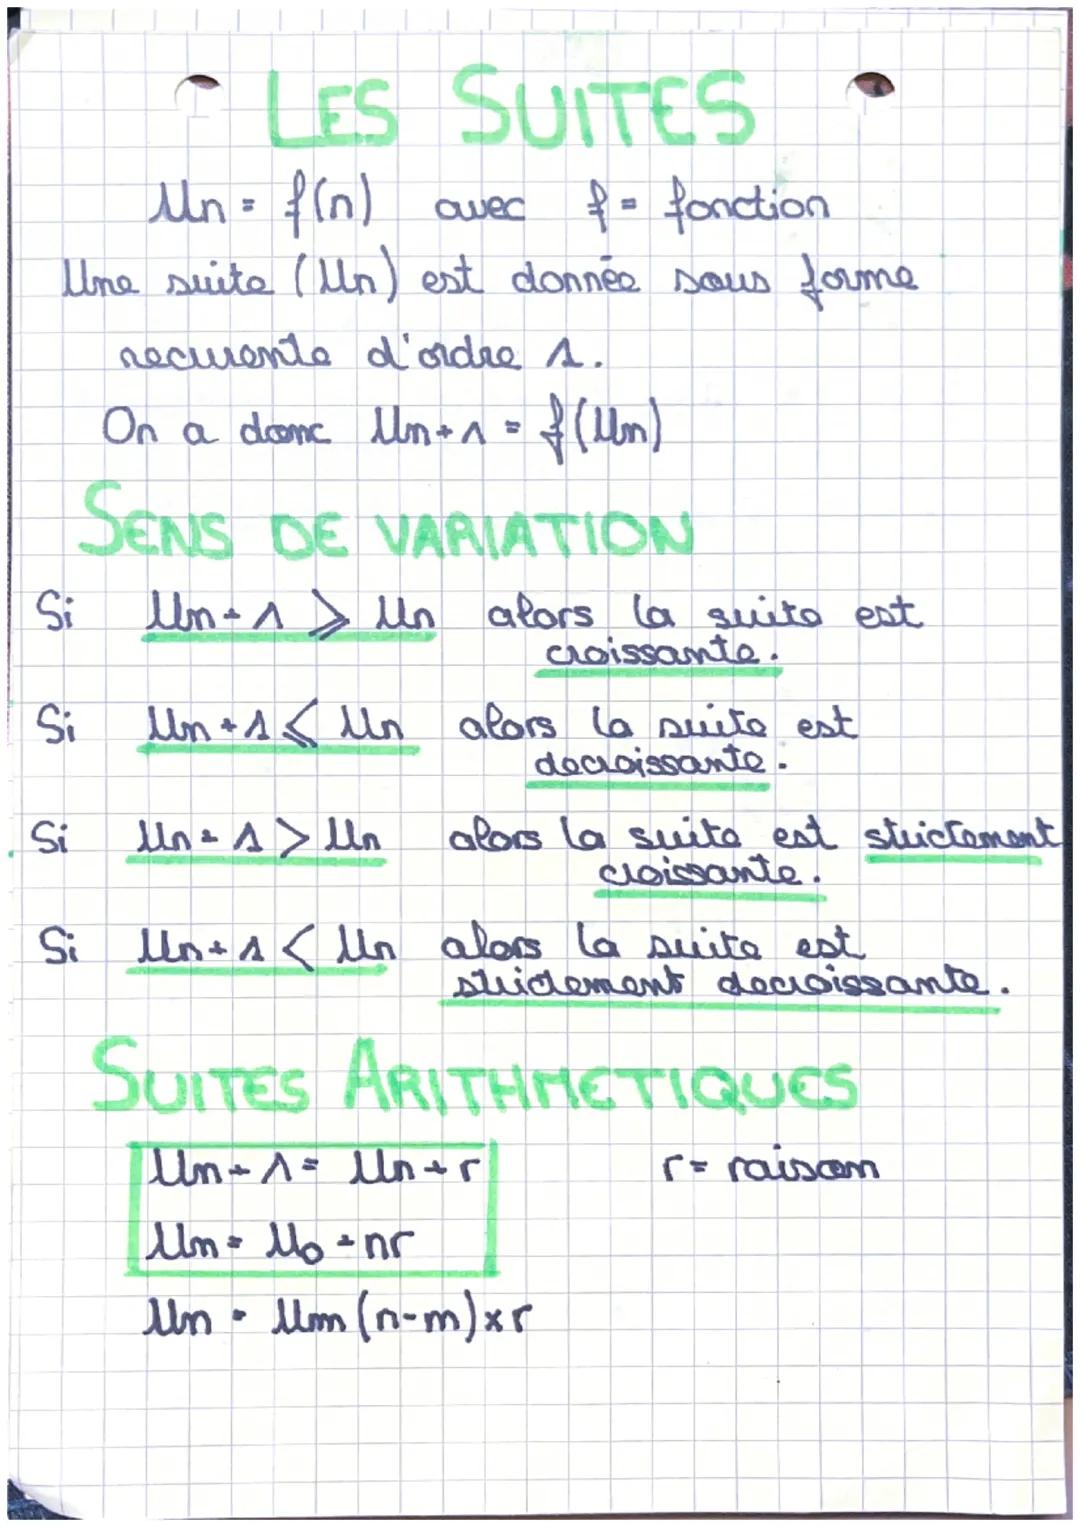 LES SUITES
Un = f(n) avec f = fonction
Une suite (Un) est donnée sous forme
recurente d'ordre 1.
On a donc Un+1 = f(Un)
SENS DE VARIATION
Si Un+1 ⩾ Un alors la suite est
croissante.
Si Un+1 ⩽ Un alors la suite est
decroissante.
Si Un+1 > Un alors la suite est strictement
croissante.
Si Un+1 < Un alors la suite est
strictement decroissante.
SUITES ARITHMETIQUES
Un+1 = Un+r r = raison
Un = U0 + nr
Un = Um (n-m)×r